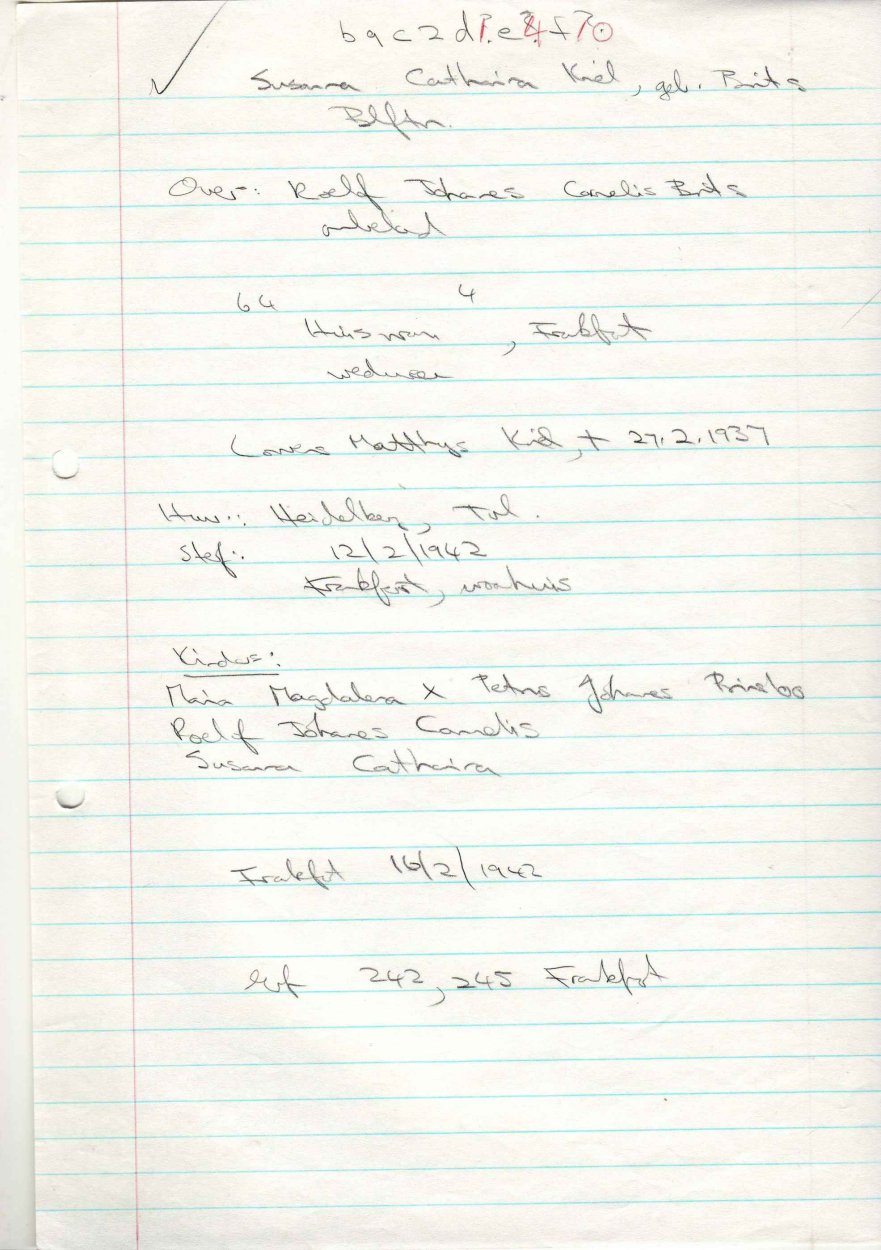 b9c2d?.e?4f?0
Susanna Catharina Kriel, geb. Brits
Blftn.
Over: Roelof Johannes Cornelis Brits
onbekend
64 4
Huisvrou, Frankfort
weduwee
Lourens Matthys Kriel, + 27.2.1937
Huw.: Heidelberg, Tvl.
Sterf.: 12/2/1942
Frankfort, woonhuis
Kinders:
Maria Magdalena x Petrus Johannes Prinsloo
Roelof Johannes Cornelis
Susanna Catharina
Frankfort 16/2/1942
Erf 242, 245 Frankfort